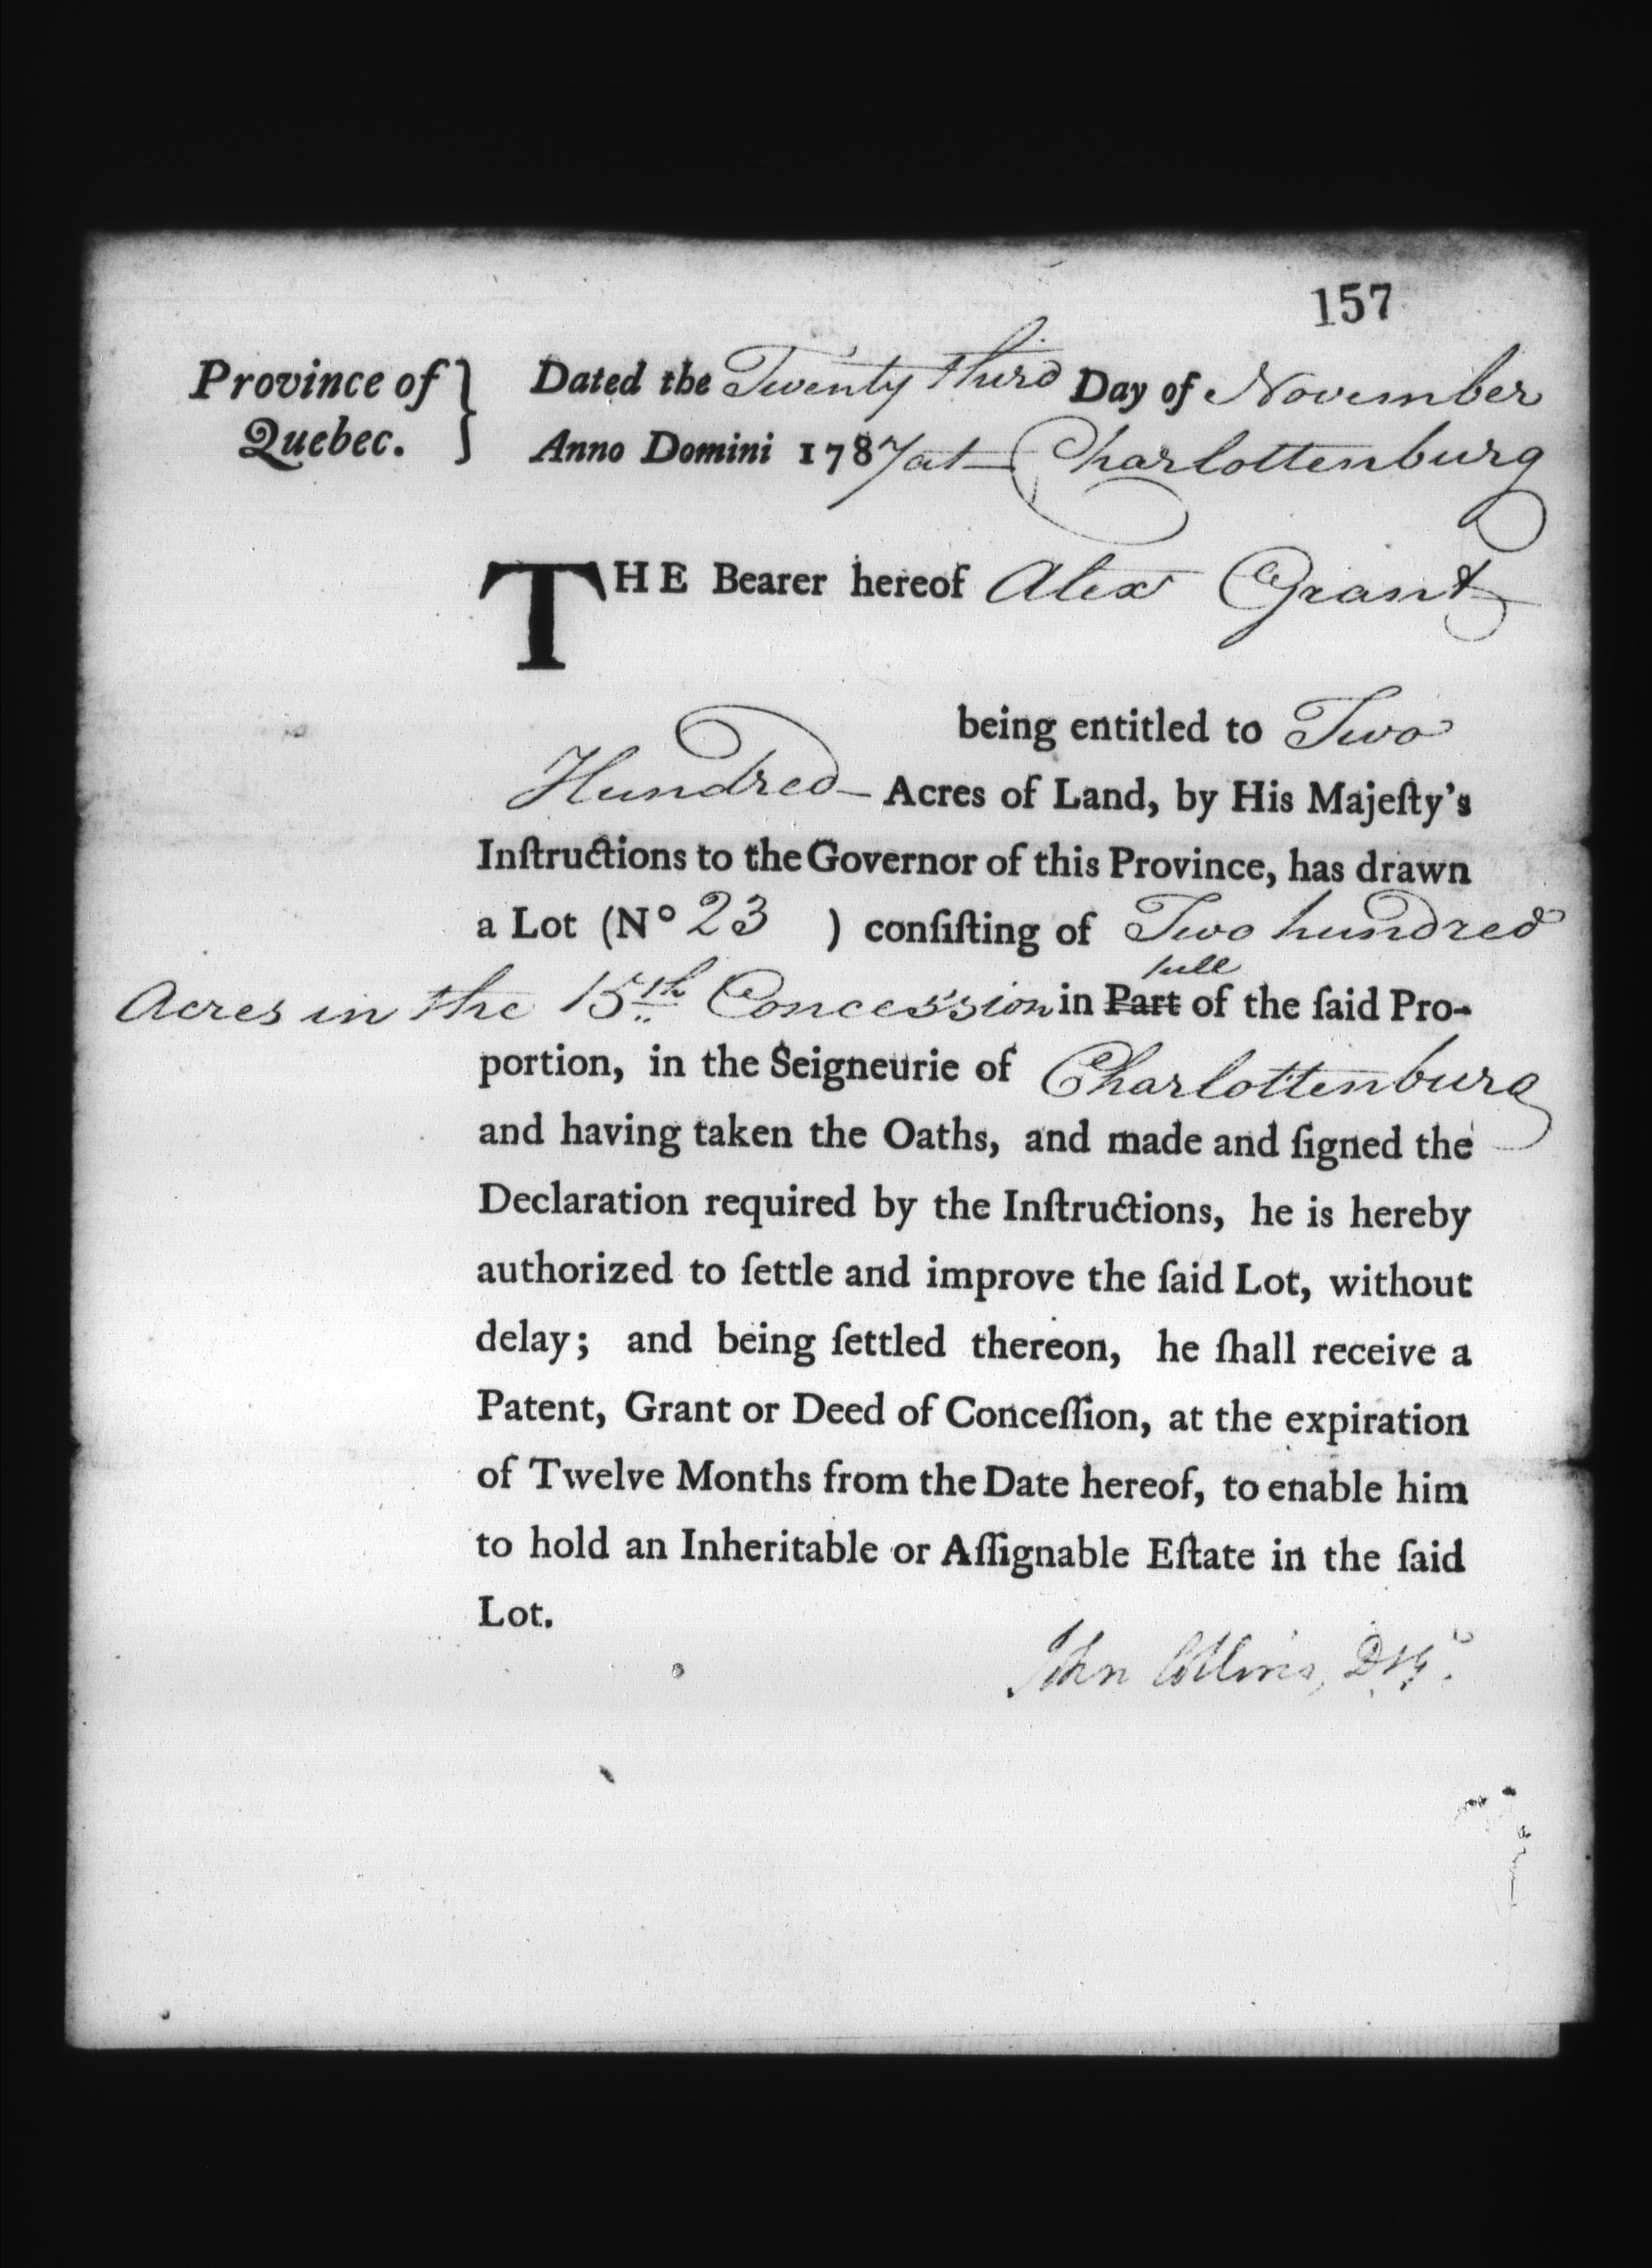 157
Province of } Dated the Twenty third Day of November
Quebec. } Anno Domini 1787 at Charlottenburg
THE Bearer hereof Alexr Grant
being entitled to Two
Hundred Acres of Land, by His Majeſty's
Inſtructions to the Governor of this Province, has drawn
a Lot (No 23 ) conſiſting of Two hundred
full
Acres in the 15th Concession in Part of the ſaid Pro-
portion, in the Seigneurie of Charlottenburg
and having taken the Oaths, and made and ſigned the
Declaration required by the Inſtructions, he is hereby
authorized to ſettle and improve the ſaid Lot, without
delay; and being ſettled thereon, he ſhall receive a
Patent, Grant or Deed of Conceſſion, at the expiration
of Twelve Months from the Date hereof, to enable him
to hold an Inheritable or Aſſignable Eſtate in the ſaid
Lot.
John Collins,